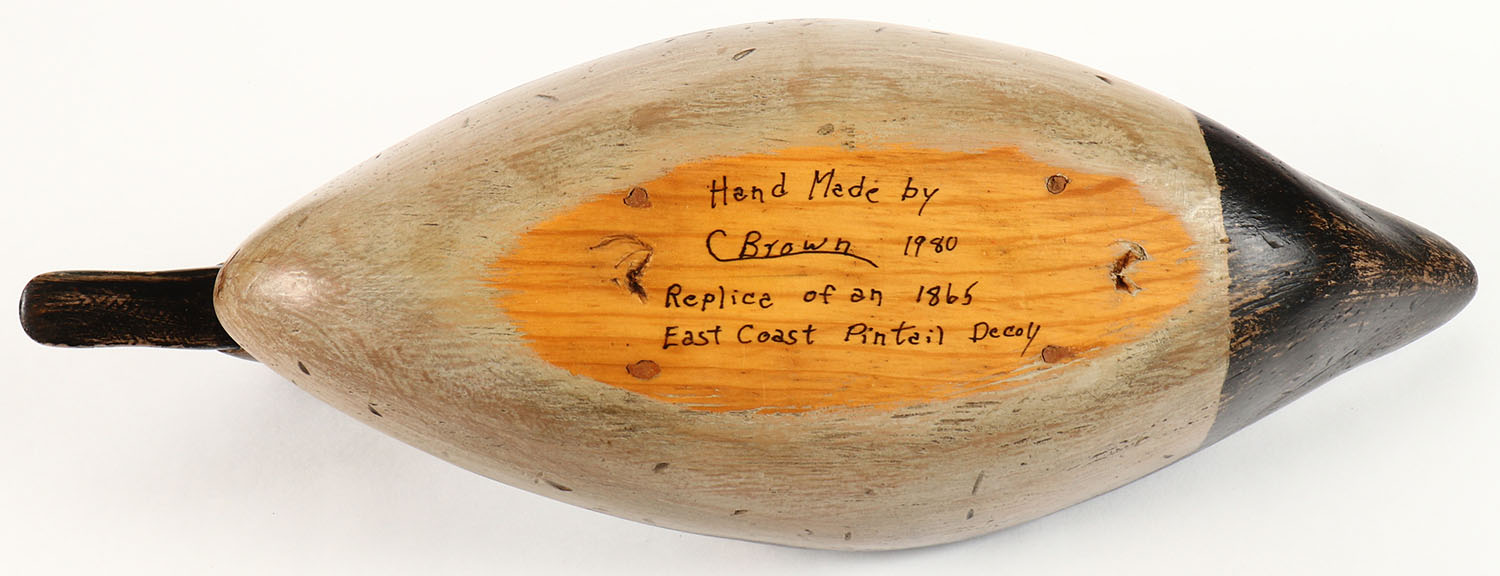 Hand Made by
C Brown 1980
Replica of an 1865
East Coast Pintail Decoy